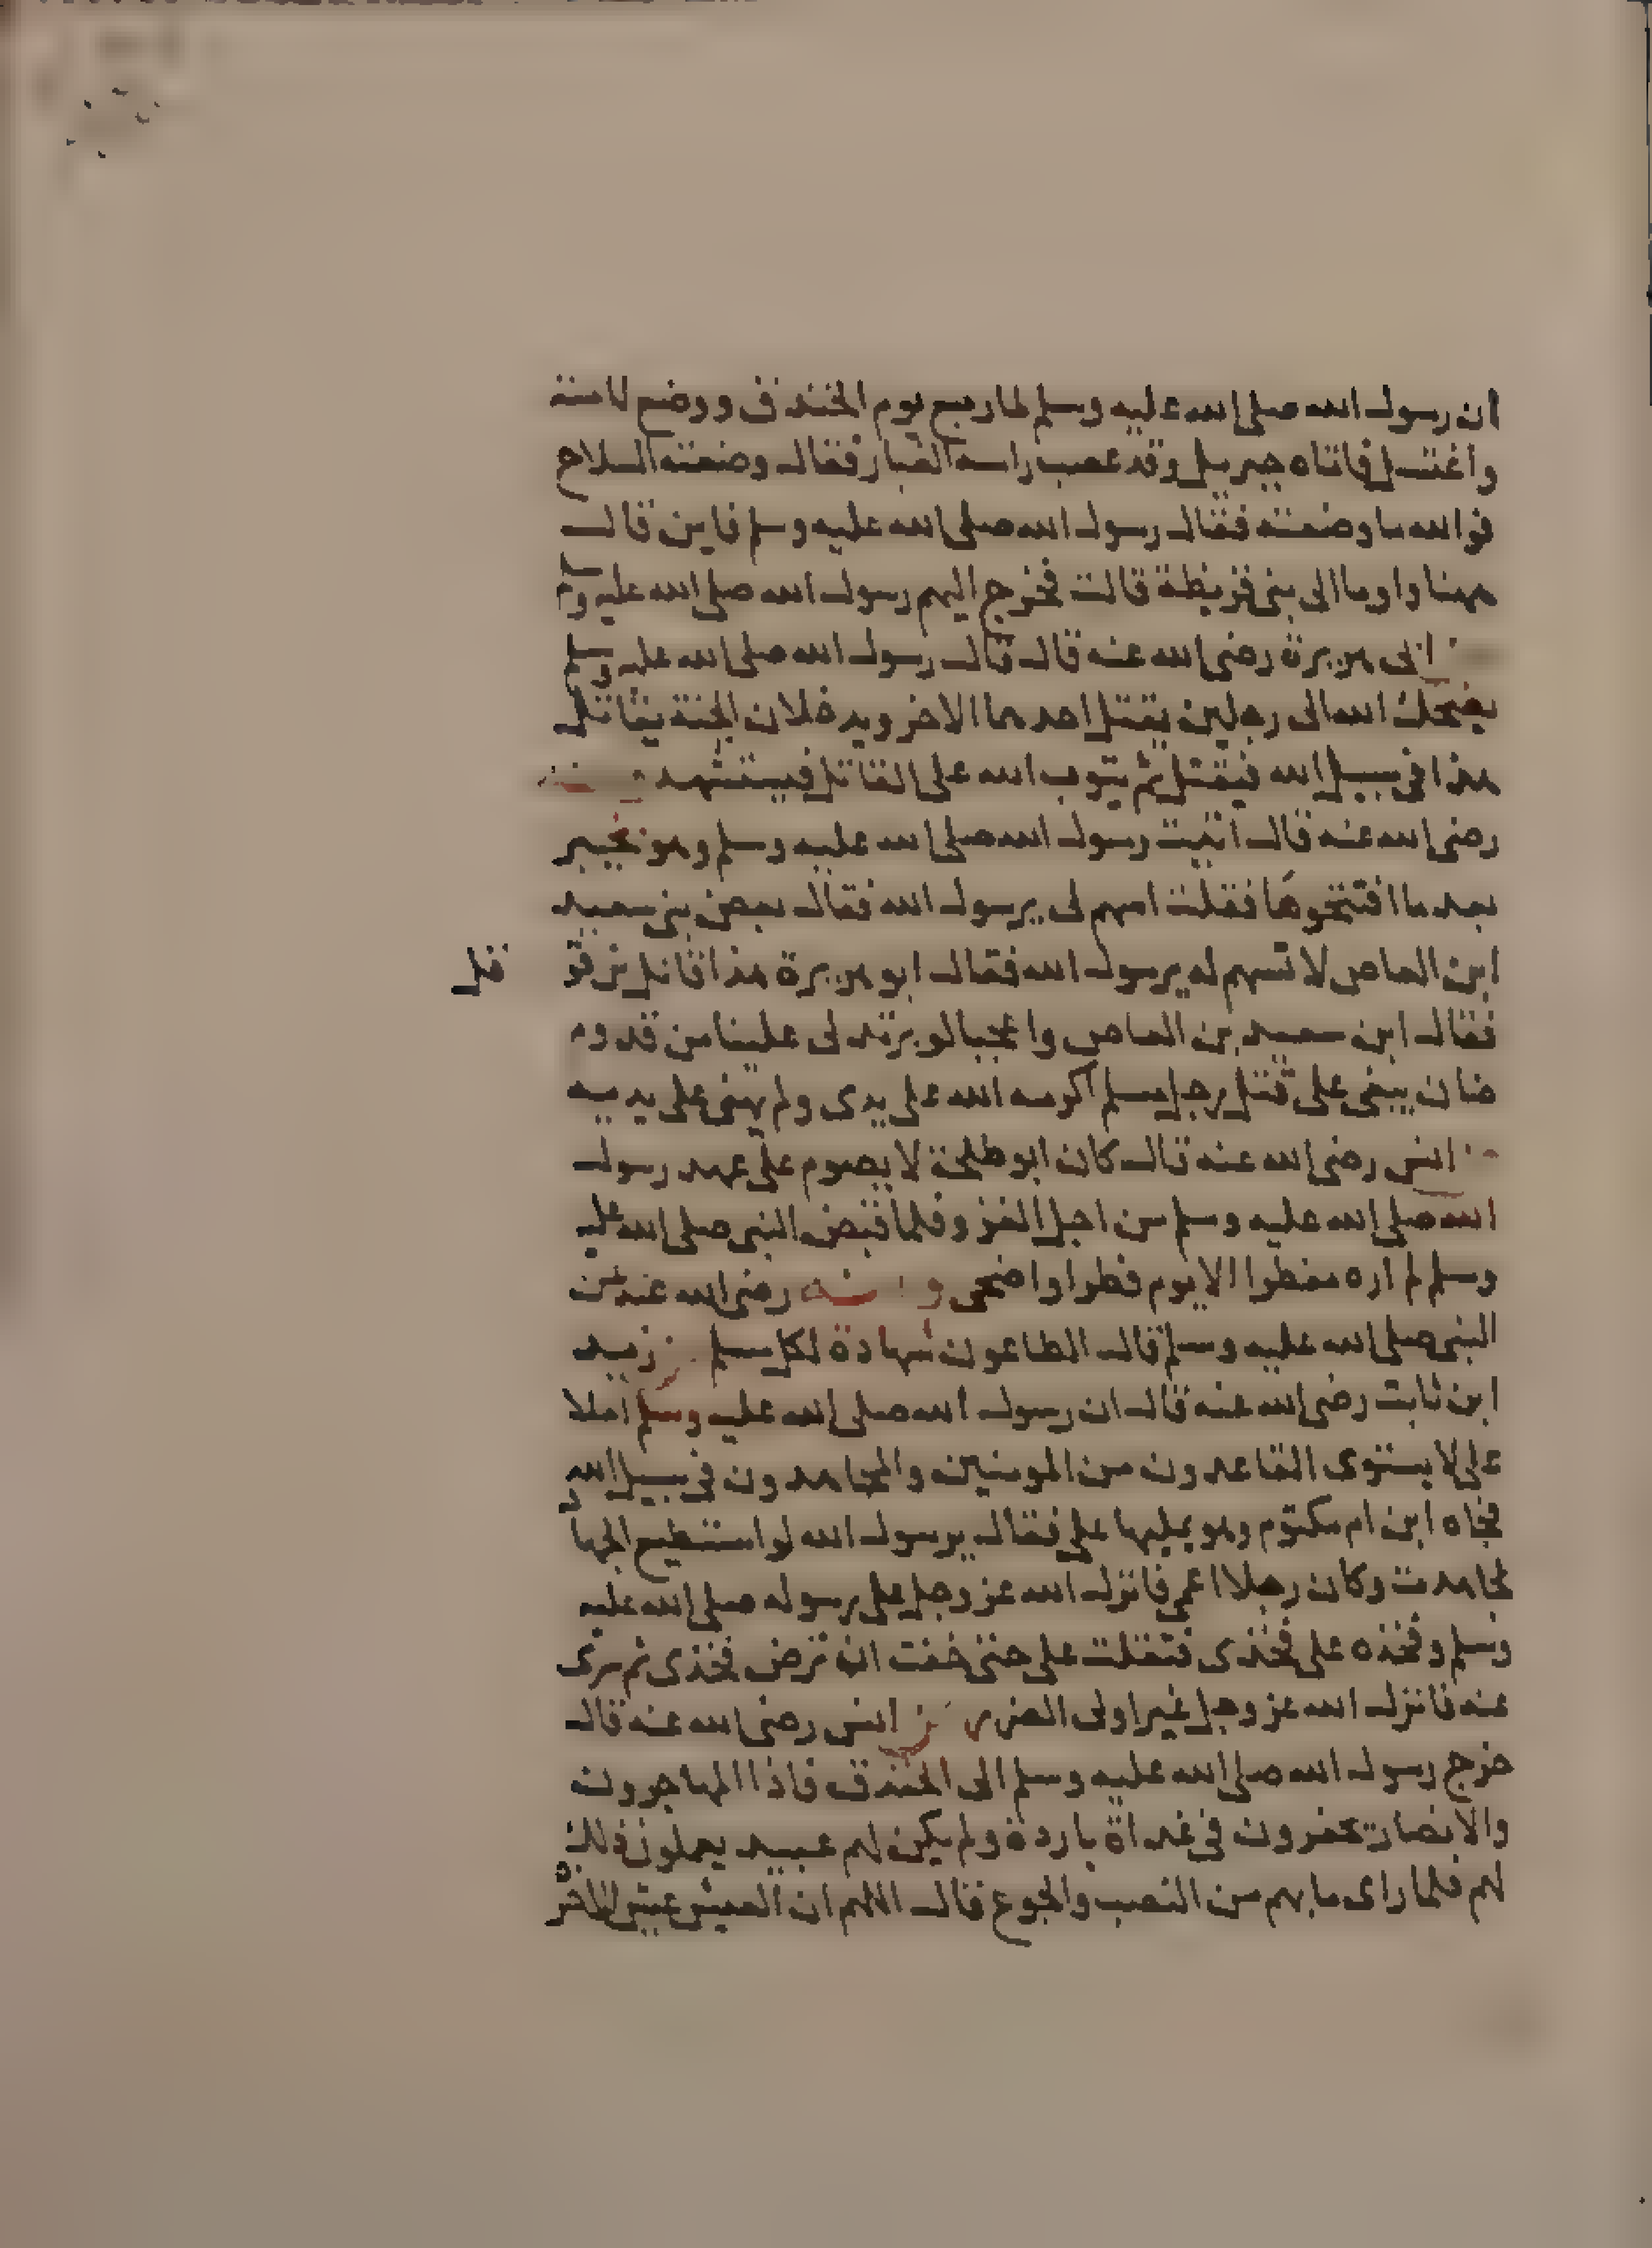 ان رسول الله صلى الله عليه وسلم لما رجع يوم الخندق ووضع لامته
واغتسل فاتاه جبريل وقد عصب راسه الغبار فقال وضعته السلاح
فوالله ما وضعته فقال رسول الله صلى الله عليه وسلم فاين قال
ههنا واوما الى بنى قريظة قالت فخرج اليهم رسول الله صلى الله عليه وسلم
ابى هريرة رضى الله عنه قال قال رسول الله صلى الله عليه وسلم
يضحك الله الى رجلين يقتل احدهما الاخر ويدخلان الجنة يقاتل
هذا فى سبيل الله فيقتل ثم يتوب الله على القاتل فيستشهد
رضى الله عنه قال اتيت رسول الله صلى الله عليه وسلم وهو بخيبر
بعد ما افتتحوها فقلت اسهم لى يرسول الله فقال بعض بنى سعيد
ابن العاص لا تسهم له يرسول الله فقال ابو هريرة هذا قاتل بن قو
قل
فقال ابن سعيد بن العاص واعجبا لوبر تدلى علينا من قدوم
ضان ينعى على قتل رجل مسلم اكرمه الله على يدى ولم يهنى على يديه
انس رضى الله عنه قال كان ابو طلحة لا يصوم على عهد رسول
الله صلى الله عليه وسلم من اجل الغزو فلما قبض النبى صلى الله عليه
وسلم لم اره مفطرا الا يوم فطر او اضحى و رضى الله عنه عن
النبى صلى الله عليه وسلم قال الطاعون شهادة لكل مسلم زيد
ابن ثابت رضى الله عنه قال ان رسول الله صلى الله عليه وسلم املا
على لا يستوى القاعدون من المومنين والمجاهدون فى سبيل الله
فجاه ابن ام مكتوم وهو يمليها على فقال يرسول الله لو استطيع الجهاد
لجاهدت وكان رجلا اعمى فانزل الله عز وجل على رسوله صلى الله عليه
وسلم وفخذه على فخذى فثقلت على حتى خفت ان ترض فخذى ثم سرى
عنه فانزل الله عز وجل غير اولى الضرر عن انس رضى الله عنه قال
خرج رسول الله صلى الله عليه وسلم الى الخندق فاذا المهاجرون
والانصار يحفرون فى غداة باردة ولم يكن لهم عبيد يعملون ذلك
لهم فلما راى ما بهم من النصب والجوع قال اللهم ان العيش عيش الاخره